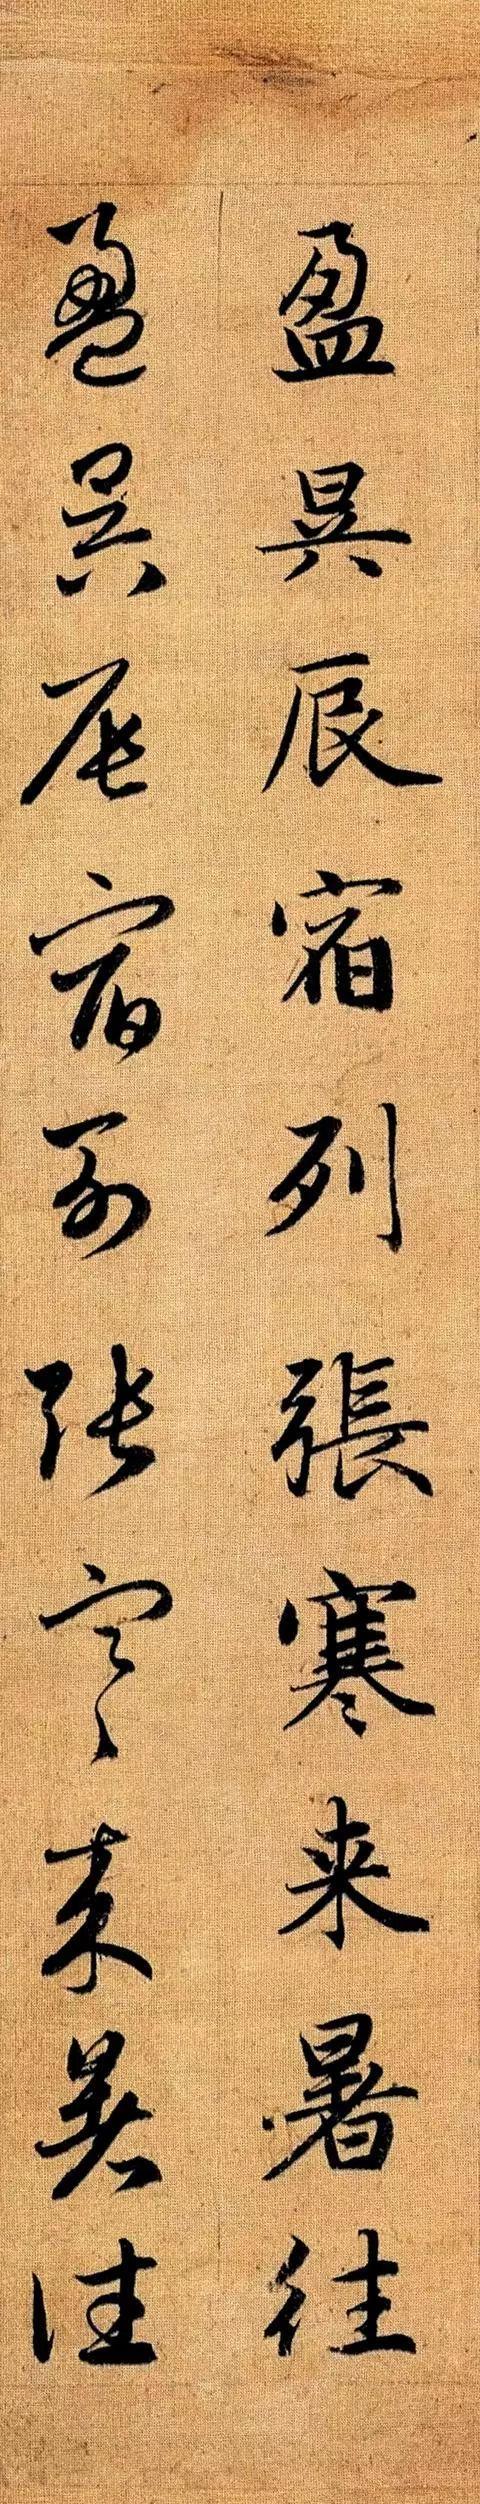 盈昃辰宿列張寒来暑往
盈昃辰宿列張寒来暑往